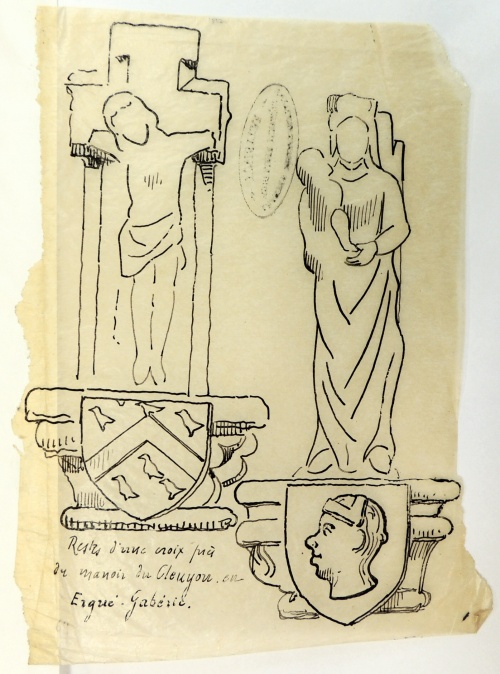 Restes d'une croix près
du manoir du Cleuyou. en
Ergué-Gabéric.